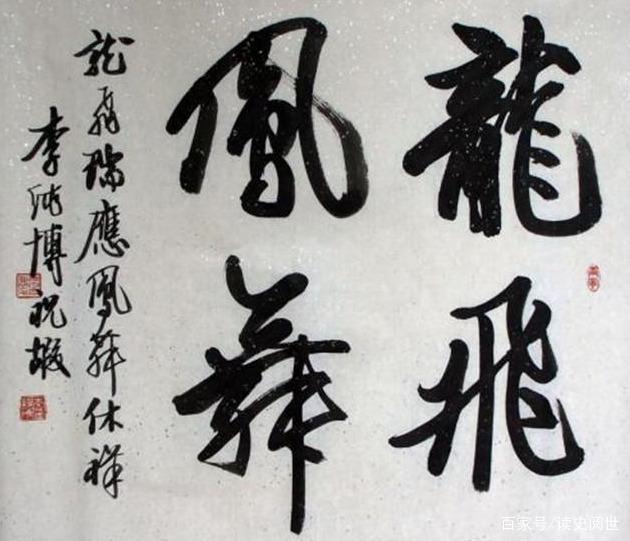 龍飛
鳳舞
龍飛瑞應鳳舞休祥
李純博祝嘏
百家号/读史阅世